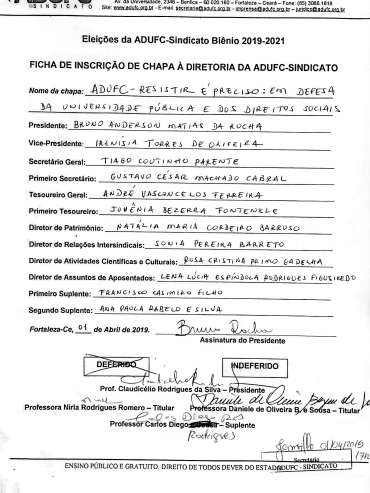 ADUFC
Av. da Universidade, 2346 – Benfica – 60.020.180 – Fortaleza – Ceará – Fone: (85) 3066.1818
Site: www.adufc.org.br - E-mail: secretaria@adufc.org.br - imprensa@adufc.org.br - juridico@adufc.org.br
Eleições da ADUFC-Sindicato Biênio 2019-2021
FICHA DE INSCRIÇÃO DE CHAPA À DIRETORIA DA ADUFC-SINDICATO
Nome da chapa: ADUFC-RESISTIR É PRECISO: EM DEFESA
DA UNIVERSIDADE PÚBLICA E DOS DIREITOS SOCIAIS
Presidente: BRUNO ANDERSON MATIAS DA ROCHA
Vice-Presidente: IRENISIA TORRES DE OLIVEIRA
Secretário Geral: TIAGO COUTINHO PARENTE
Primeiro Secretário: GUSTAVO CÉSAR MACHADO CABRAL
Tesoureiro Geral: ANDRÉ VASCONCELOS FERREIRA
Primeiro Tesoureiro: JUVÊNIA BEZERRA FONTENELE
Diretor de Patrimônio: NATÁLIA MARIA CORDEIRO BARROSO
Diretor de Relações Intersindicais: SONIA PEREIRA BARRETO
Diretor de Atividades Científicas e Culturais: ROSA CRISTINA PRIMO GADELHA
Diretor de Assuntos de Aposentados: LENA LÚCIA ESPÍNDOLA RODRIGUES FIGUEIREDO
Primeiro Suplente: FRANCISCO CASIMIRO FILHO
Segundo Suplente: ANA PAULA RABELO E SILVA
Fortaleza-Ce, 01 de Abril de 2019. Bruno Rocha
Assinatura do Presidente
DEFERIDO INDEFERIDO
Prof. Claudicélio Rodrigues da Silva – Presidente
Professora Nirla Rodrigues Romero – Titular Professora Daniele de Oliveira B. e Sousa – Titular
Professor Carlos Diego Rodrigues – Suplente
Secretária
ENSINO PÚBLICO E GRATUITO: DIREITO DE TODOS DEVER DO ESTADO
ADUFC - SINDICATO